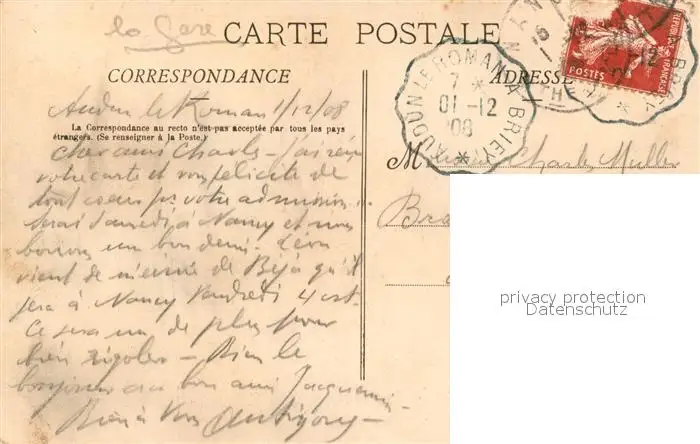 la Gare
CARTE POSTALE
CORRESPONDANCE
ADRESSE
REPUBLIQUE FRANÇAISE
POSTES
AUDUN LE ROMAN A BRIEY
7
01-12
08
Audun le Roman 1/12/08
La Correspondance au recto n'est pas acceptée par tous les pays
étrangers. (Se renseigner à la Poste.)
Cher ami Charles – J'ai reçu
votre carte et vous félicite de
tout coeur pr votre admission
Serai Samedi à Nancy et nous
boirons un bon demi. Léon
vient de m'écrire de Béja qu'il
sera à Nancy Vendredi 4 ct.
Ce sera un de plus pour
bien rigoler – Bien le
bonjour au bon ami Jacquemin.
Bien à Vous
M Charles Muller
privacy protection
Datenschutz